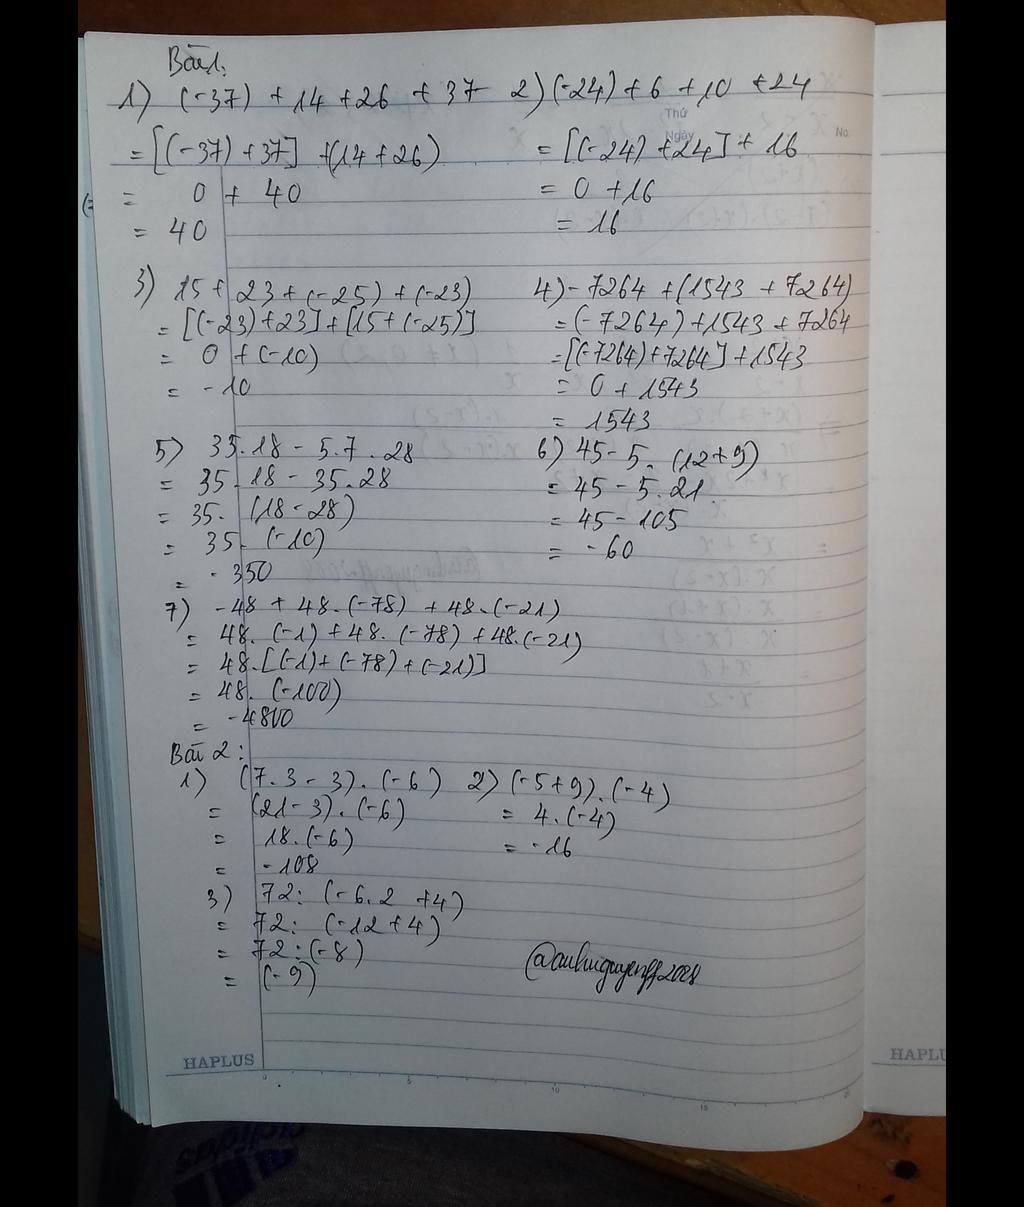 Bài 1:
1) (-37) + 14 + 26 + 37
= [(-37) + 37] + (14 + 26)
= 0 + 40
= 40
2) (-24) + 6 + 10 + 24
= [(-24) + 24] + 16
= 0 + 16
= 16
Thứ
Ngày
No.
3) 15 + 23 + (-25) + (-23)
= [(-23) + 23] + [15 + (-25)]
= 0 + (-10)
= -10
4) - 7264 + (1543 + 7264)
= (-7264) + 1543 + 7264
= [(-7264) + 7264] + 1543
= 0 + 1543
= 1543
5) 35.18 - 5.7.28
= 35.18 - 35.28
= 35. (18 - 28)
= 35. (-10)
= -350
6) 45 - 5. (12 + 9)
= 45 - 5.21
= 45 - 105
= -60
7) -48 + 48.(-78) + 48.(-21)
= 48. (-1) + 48. (-78) + 48.(-21)
= 48.[(-1) + (-78) + (-21)]
= 48. (-100)
= -4800
Bài 2:
1) (7.3 - 3).(-6)
= (21 - 3).(-6)
= 18.(-6)
= -108
2) (-5 + 9).(-4)
= 4.(-4)
= -16
3) 72: (-6.2 + 4)
= 72: (-12 + 4)
= 72:(-8)
= (-9)
HAPLUS
0 5 10 15 20
HAPLU
adidas